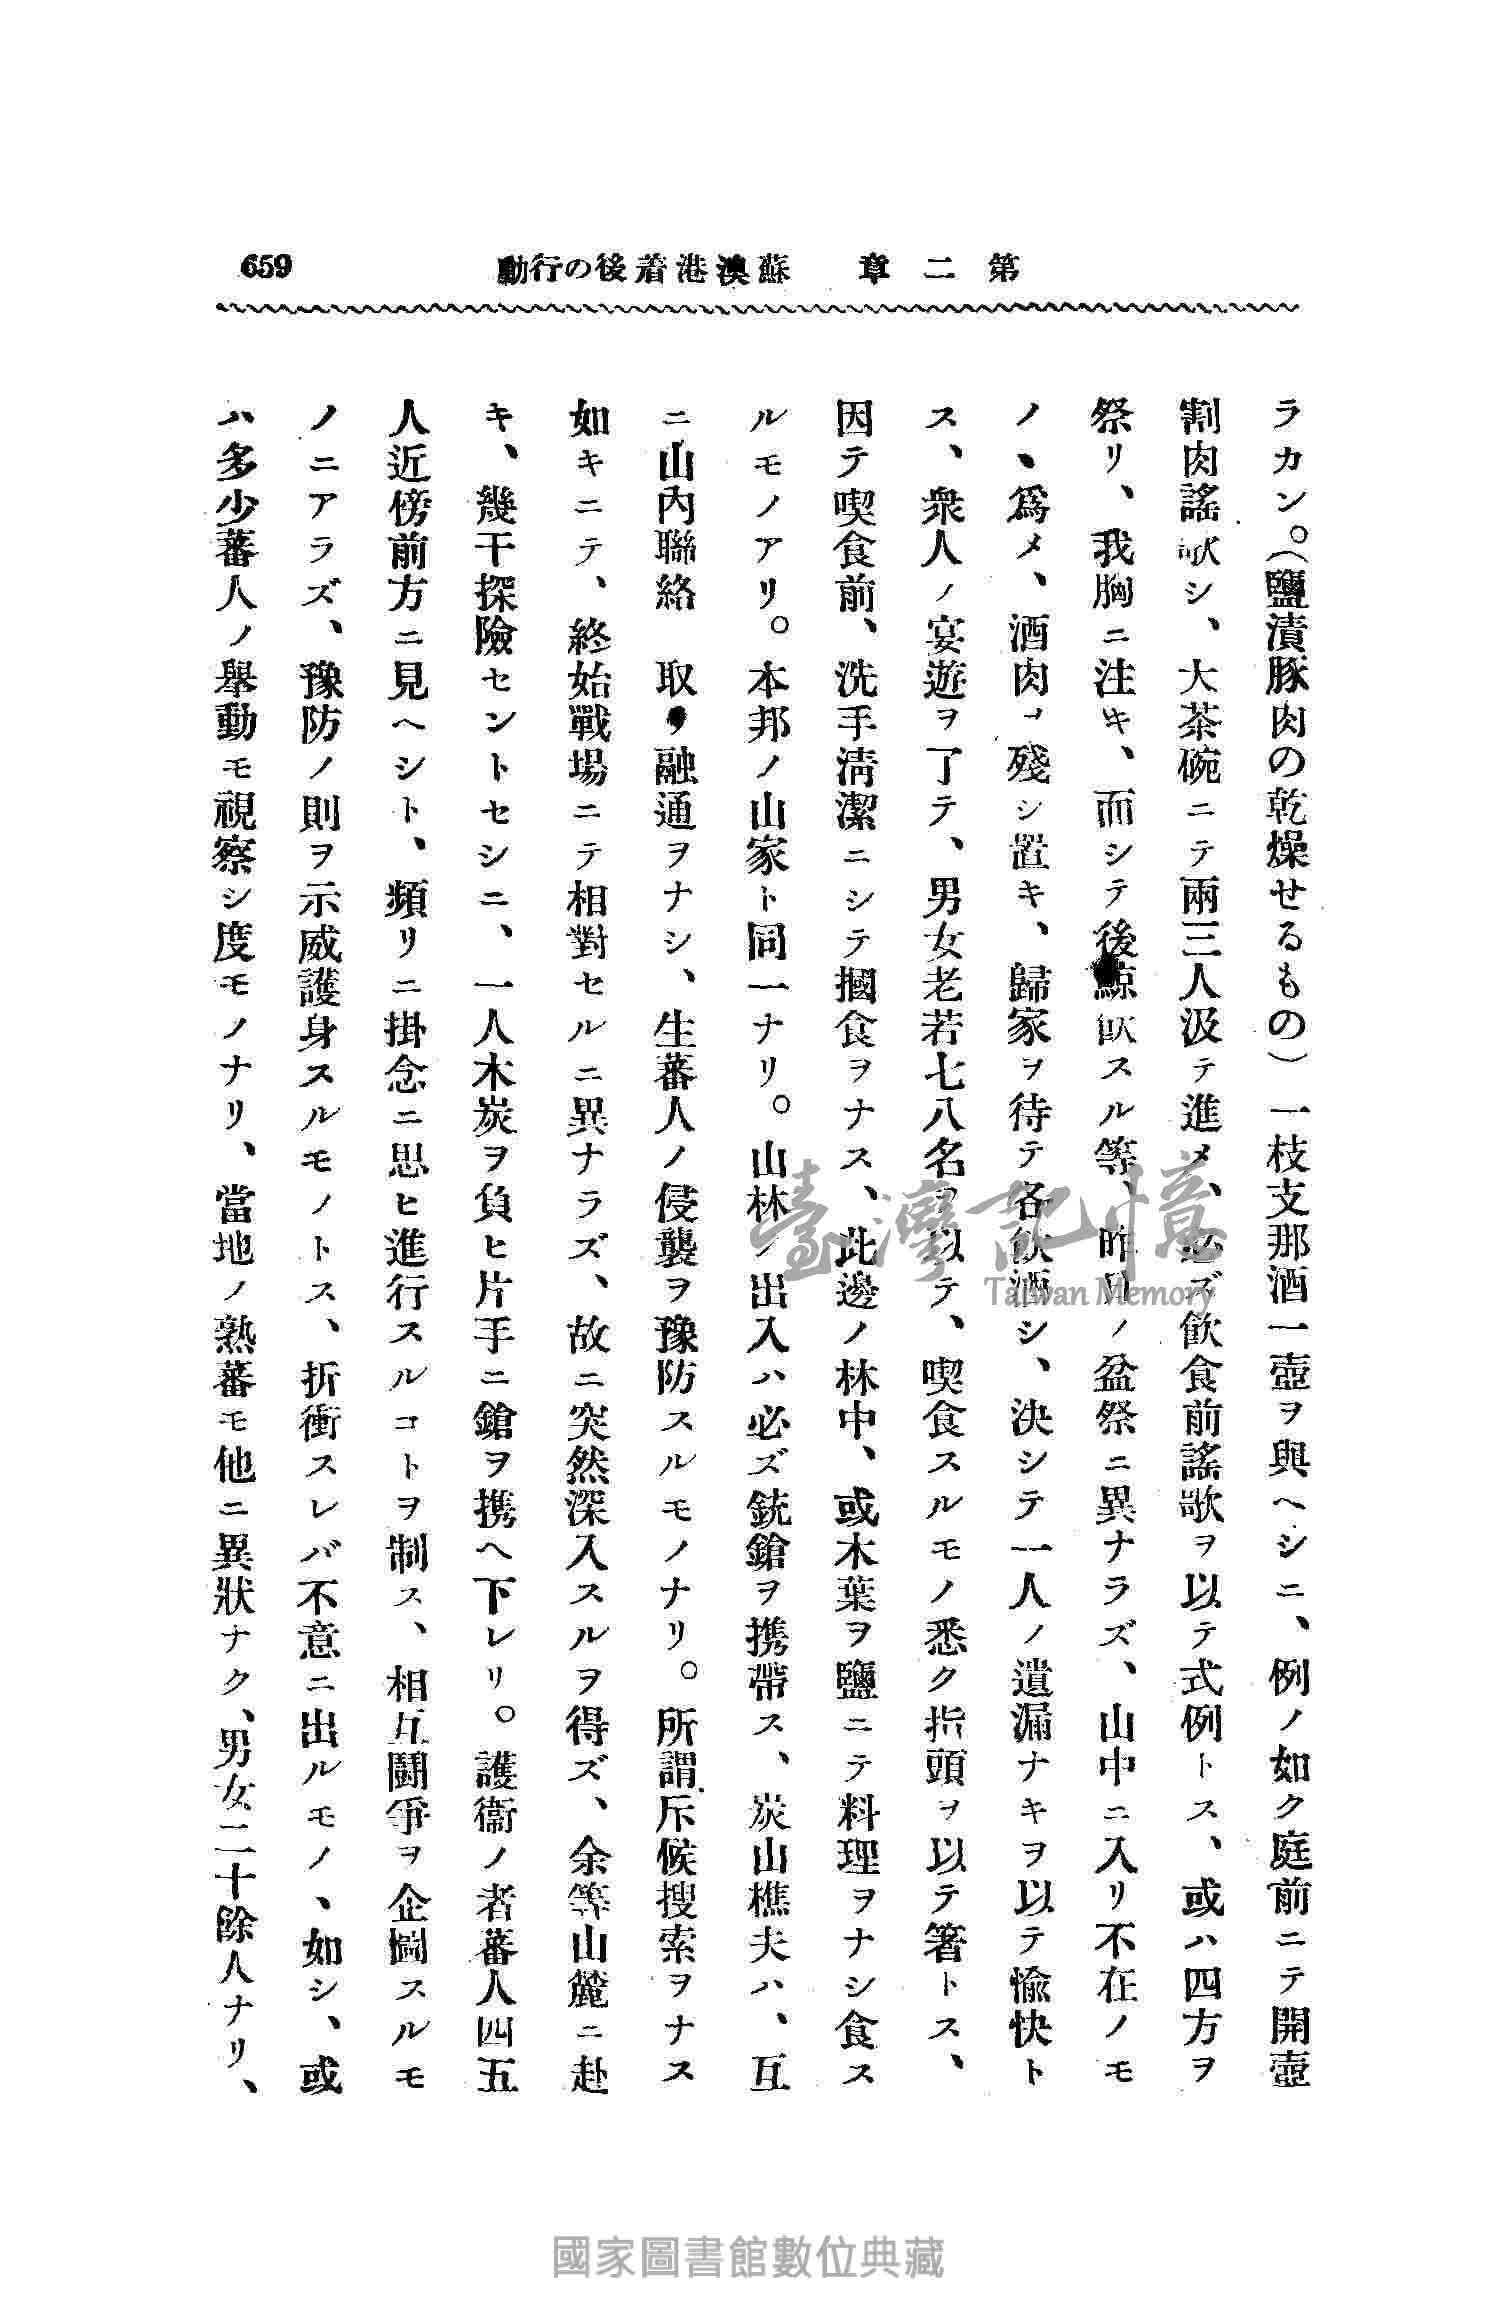 659
第二章 蘇澳港着後の行動
ラカン。（鹽漬豚肉の乾燥せるもの）一枝支那酒一壺ヲ與ヘシニ、例ノ如ク庭前ニテ開壺
割肉謠歌シ、大茶碗ニテ兩三人汲テ進メ、必ズ飮食前謠歌ヲ以テ式例トス、或ハ四方ヲ
祭リ、我胸ニ注キ、而シテ後鯨飮スル等、昨日ノ盆祭ニ異ナラズ、山中ニ入リ不在ノモ
ノヽ爲メ、酒肉ヲ殘シ置キ、歸家ヲ待テ各飮酒シ、決シテ一人ノ遺漏ナキヲ以テ愉快ト
ス、衆人ノ宴遊ヲ了テ、男女老若七八名ヲ以テ、喫食スルモノ悉ク指頭ヲ以テ箸トス、
因テ喫食前、洗手淸潔ニシテ摑食ヲナス、此邊ノ林中、或木葉ヲ鹽ニテ料理ヲナシ食ス
ルモノアリ。本邦ノ山家ト同一ナリ。山林ノ出入ハ必ズ銃鎗ヲ携帶ス、炭山樵夫ハ、互
ニ山內聯絡 取リ融通ヲナシ、生蕃人ノ侵襲ヲ豫防スルモノナリ。所謂斥候搜索ヲナス
如キニテ、終始戰場ニテ相對セルニ異ナラズ、故ニ突然深入スルヲ得ズ、余等山麓ニ赴
キ、幾干探險セントセシニ、一人木炭ヲ負ヒ片手ニ鎗ヲ携ヘ下レリ。護衞ノ者蕃人四五
人近傍前方ニ見ヘシト、頻リニ掛念ニ思ヒ進行スルコトヲ制ス、相互鬪爭ヲ企圖スルモ
ノニアラズ、豫防ノ則ヲ示威護身スルモノトス、折衝スレバ不意ニ出ルモノヽ如シ、或
ハ多少蕃人ノ舉動モ視察シ度モノナリ、當地ノ熟蕃モ他ニ異狀ナク、男女二十餘人ナリ、
臺灣記憶
Taiwan Memory
國家圖書館數位典藏